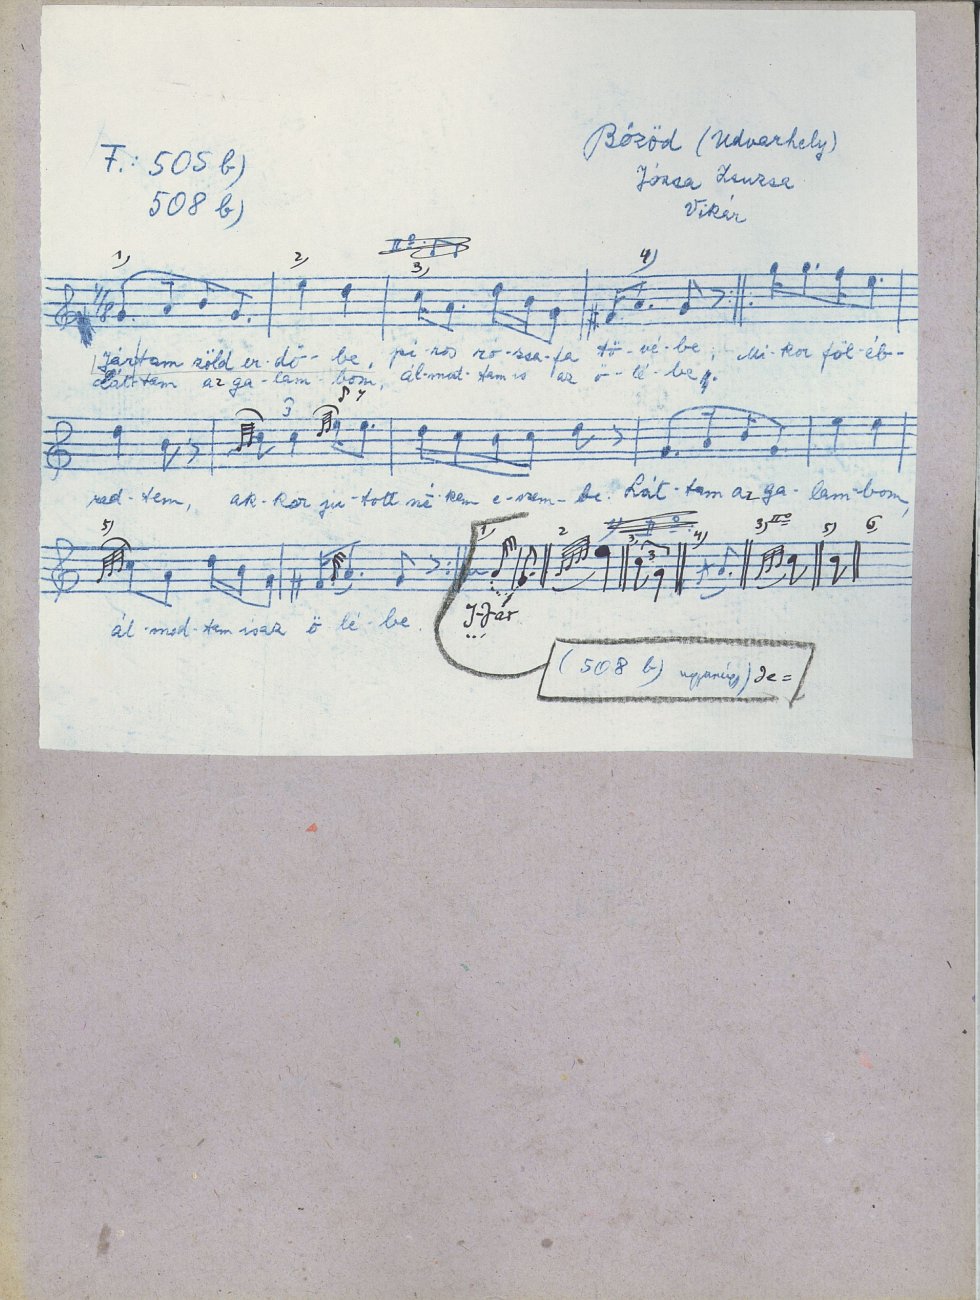 F.: 505 b)
508 b)
Bözöd (Udvarhely)
Józsa Zsuzsa
Vikár
1) 2) 3) 4)
Jártam zöld er-dő-- be, pi-ros ró-zsa-fa tö-vé-be, Mi-kor föl-éb--
Láttam az ga-lam-bom, ál-mod-tam is az ö-lé-be,
3
rad-tem, ak-kor ju-tott né-kem e-szem-be. Lát-tam az ga-lam-bom,
5)
ál-mod-tam is az ö lé-be
1) 2 3 4) 3) 5) 6
J-Jár
(508 b) ugyanúgy) de =